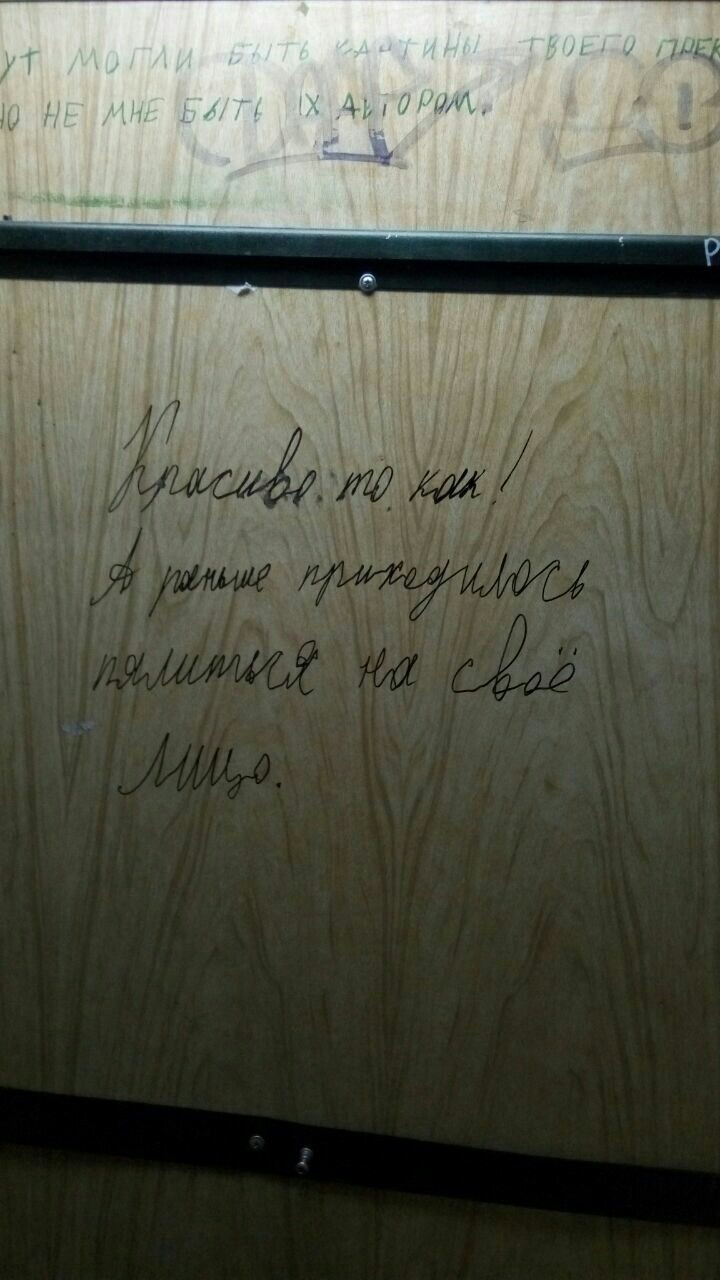 УТ МОГЛИ БЫТЬ КАРТИНЫ ТВОЕГО ПРЕК
НО НЕ МНЕ БЫТЬ ИХ АВТОРОМ.
Р
Красиво то как!
А раньше приходилось
пялиться на своё
лицо.